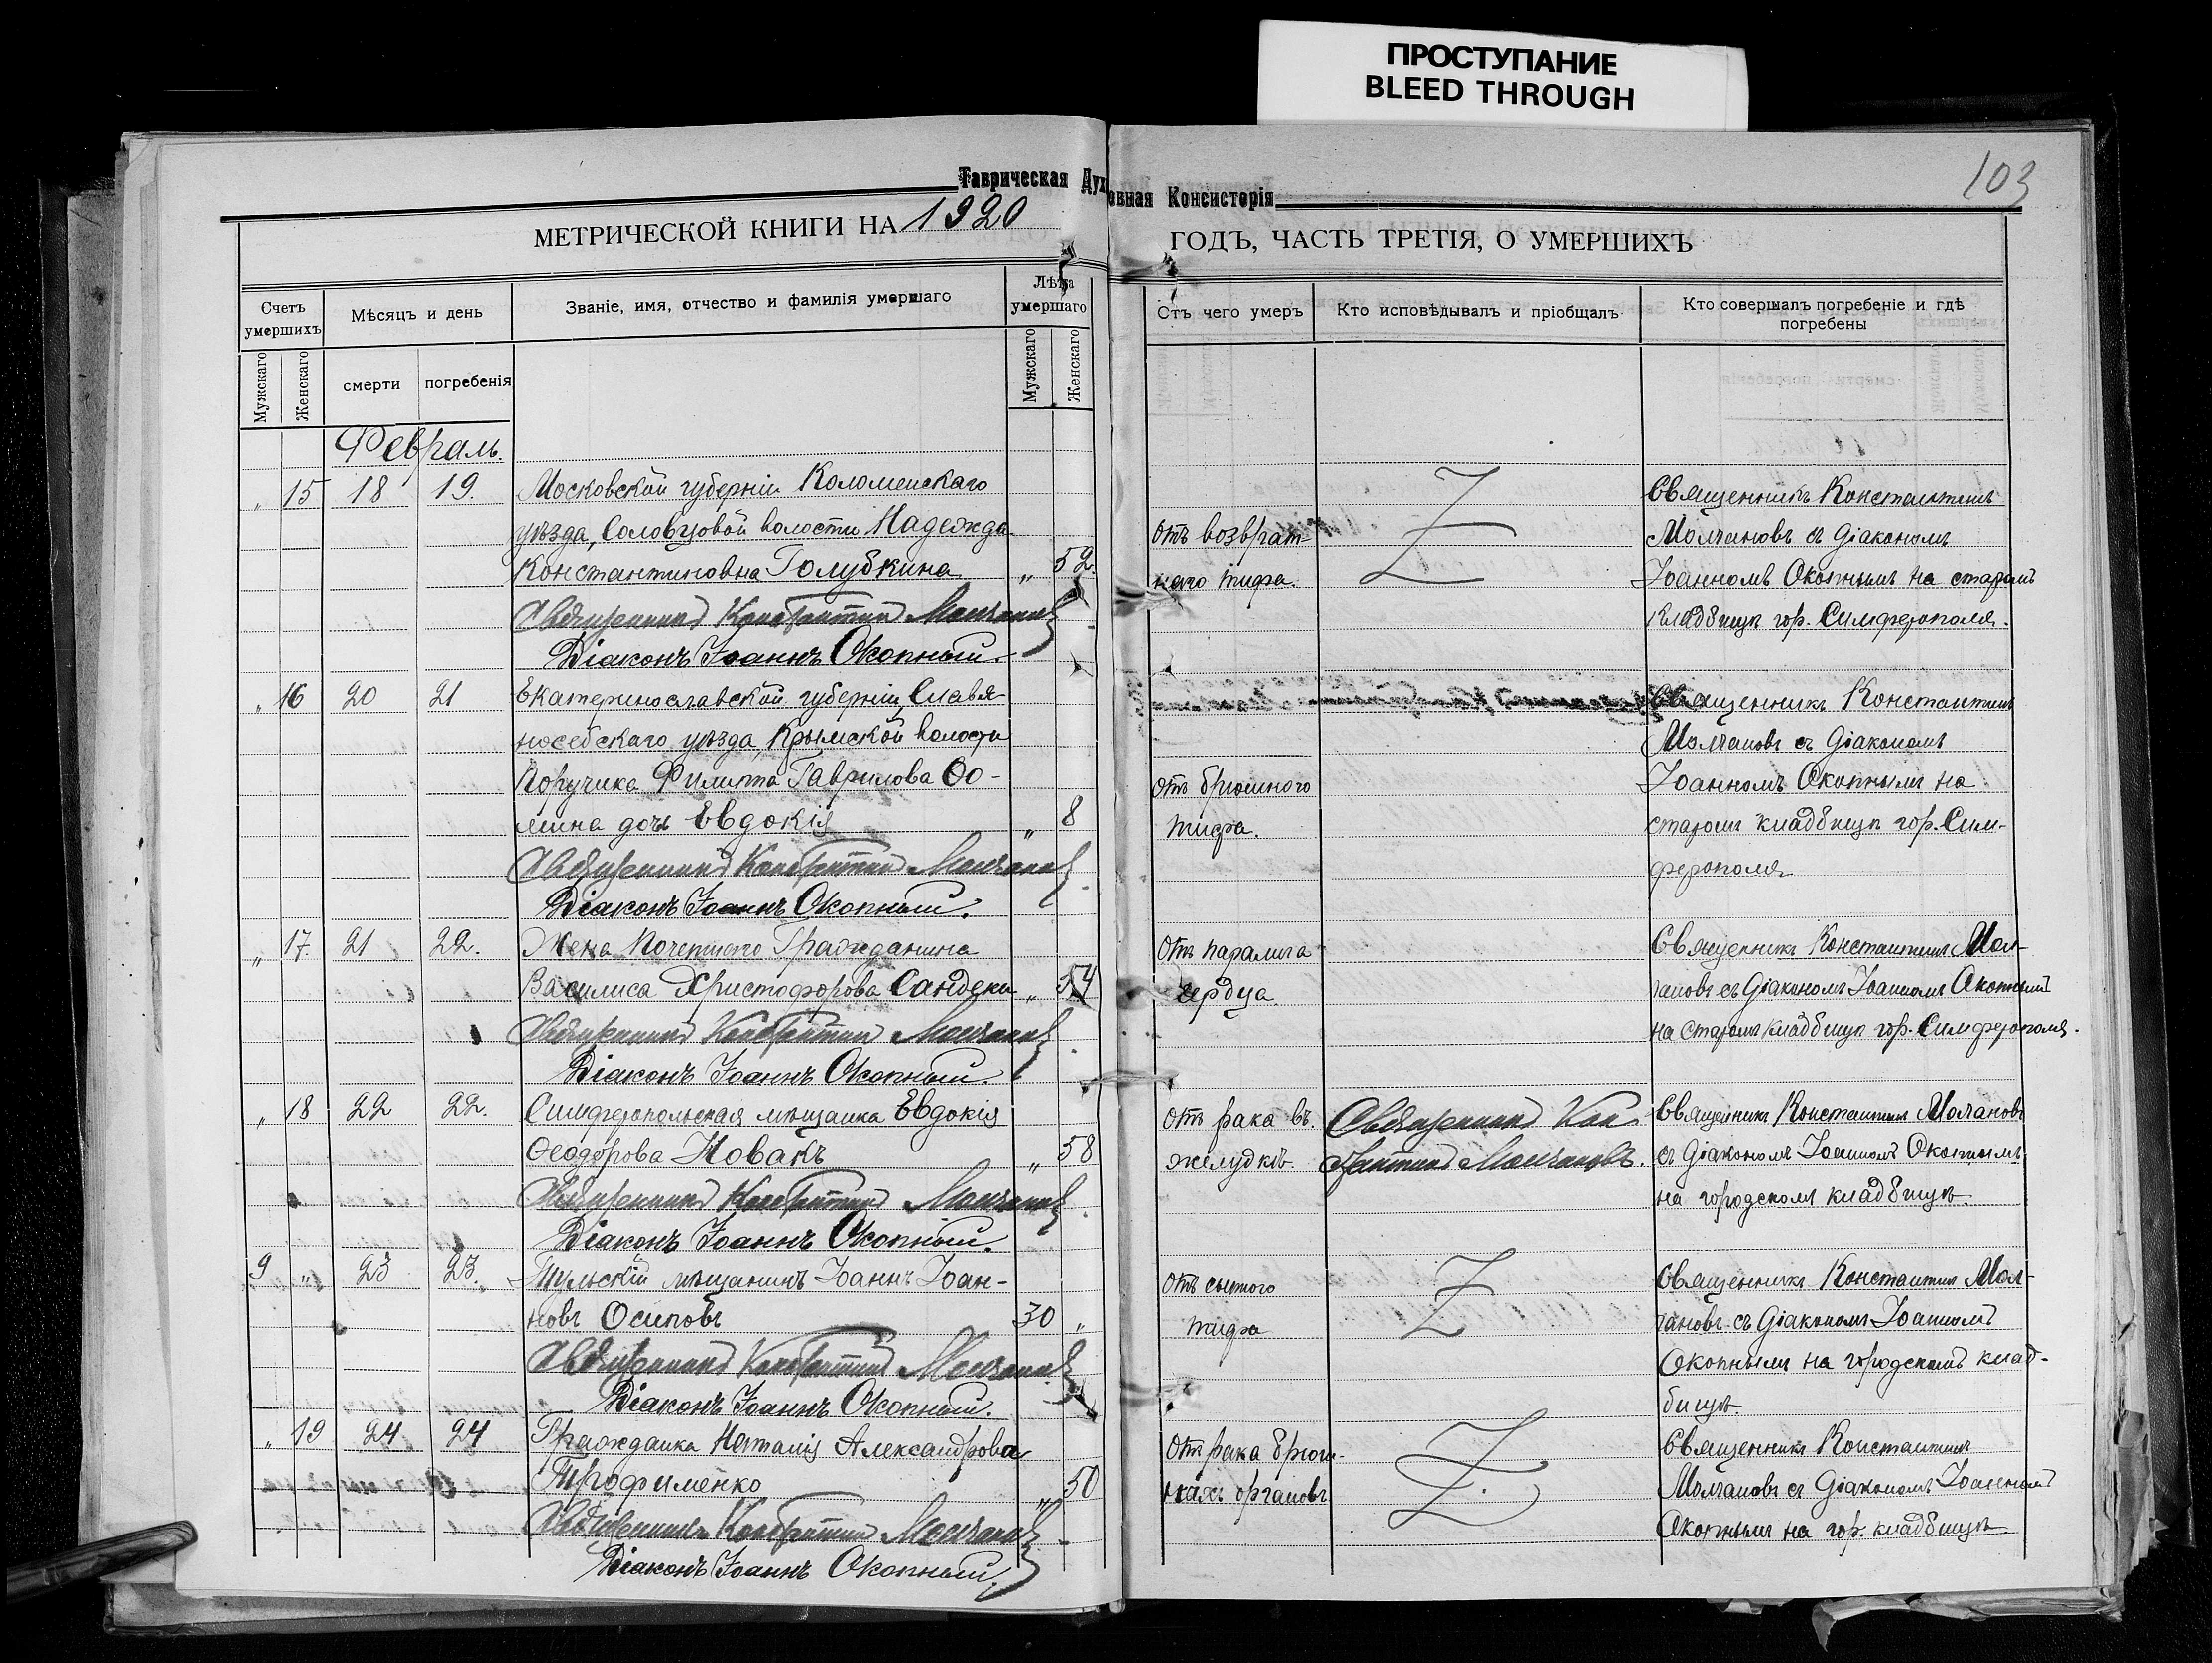 ПРОСТУПАНИЕ
BLEED THROUGH
103
Таврическая Духовная Консисторія
МЕТРИЧЕСКОЙ КНИГИ НА 1920 ГОДЪ, ЧАСТЬ ТРЕТІЯ, О УМЕРШИХЪ
Счетъ умершихъ
Мѣсяцъ и день
Званіе, имя, отчество и фамилія умершаго
Лѣта умершаго
Отъ чего умеръ
Кто исповѣдывалъ и пріобщалъ
Кто совершалъ погребеніе и гдѣ погребены
Мужскаго
Женскаго
смерти
погребенія
Мужскаго
Женскаго
Февраль.
„ 15 18 19. Московской губерніи Коломенскаго
уѣзда, Соловцовой волости Надежда
Константиновна Голубкина „ 52.
Священникъ Константинъ Молчановъ
Діаконъ Іоаннъ Окопный.
отъ возврат-
наго тифа.
Священникъ Константинъ
Молчановъ съ діакономъ
Іоанномъ Окопнымъ на старомъ
кладбищѣ гор. Симферополя.
„ 16 20 21 Екатеринославской губерніи, Славя-
носербскаго уѣзда, Крымской волости
Поручика Филиппа Гаврилова Ѳо-
мина дочь Евдокія „ 8
Священникъ Константинъ Молчановъ
Діаконъ Іоаннъ Окопный.
отъ брюшного
тифа.
Священникъ Константинъ
Молчановъ съ діакономъ
Іоанномъ Окопнымъ на
старомъ кладбищѣ гор. Сим-
ферополя
„ 17. 21 22. Жена Почетнаго Гражданина
Василиса Христофорова Сандеки „ 54
Священникъ Константинъ Молчановъ
Діаконъ Іоаннъ Окопный.
отъ паралича
сердца.
Священникъ Константинъ Мол-
чановъ съ діакономъ Іоанномъ Окопнымъ
на старомъ кладбищѣ гор. Симферополя.
„ 18 22 22. Симферопольская мѣщанка Евдокія
Ѳеодорова Новакъ „ 58
Священникъ Константинъ Молчановъ
Діаконъ Іоаннъ Окопный.
отъ рака въ
желудкѣ.
Священникъ Кон-
стантинъ Молчановъ.
Священникъ Константинъ Молчановъ
съ діакономъ Іоанномъ Окопнымъ
на городскомъ кладбищѣ.
9 „ 23 23. Тульскій мѣщанинъ Іоаннъ Іоан-
новъ Осиповъ 30 „
Священникъ Константинъ Молчановъ
Діаконъ Іоаннъ Окопный.
отъ сыпного
тифа
Священникъ Константинъ Мол-
чановъ съ діакономъ Іоанномъ
Окопнымъ на городскомъ клад-
бищѣ.
„ 19 24 24 Гражданка Наталія Александрова
Трофименко „ 50
Священникъ Константинъ Молчановъ
Діаконъ Іоаннъ Окопный.
отъ рака брюш-
ныхъ органовъ
Священникъ Константинъ
Молчановъ съ діакономъ Іоанномъ
Окопнымъ на гор. кладбищѣ